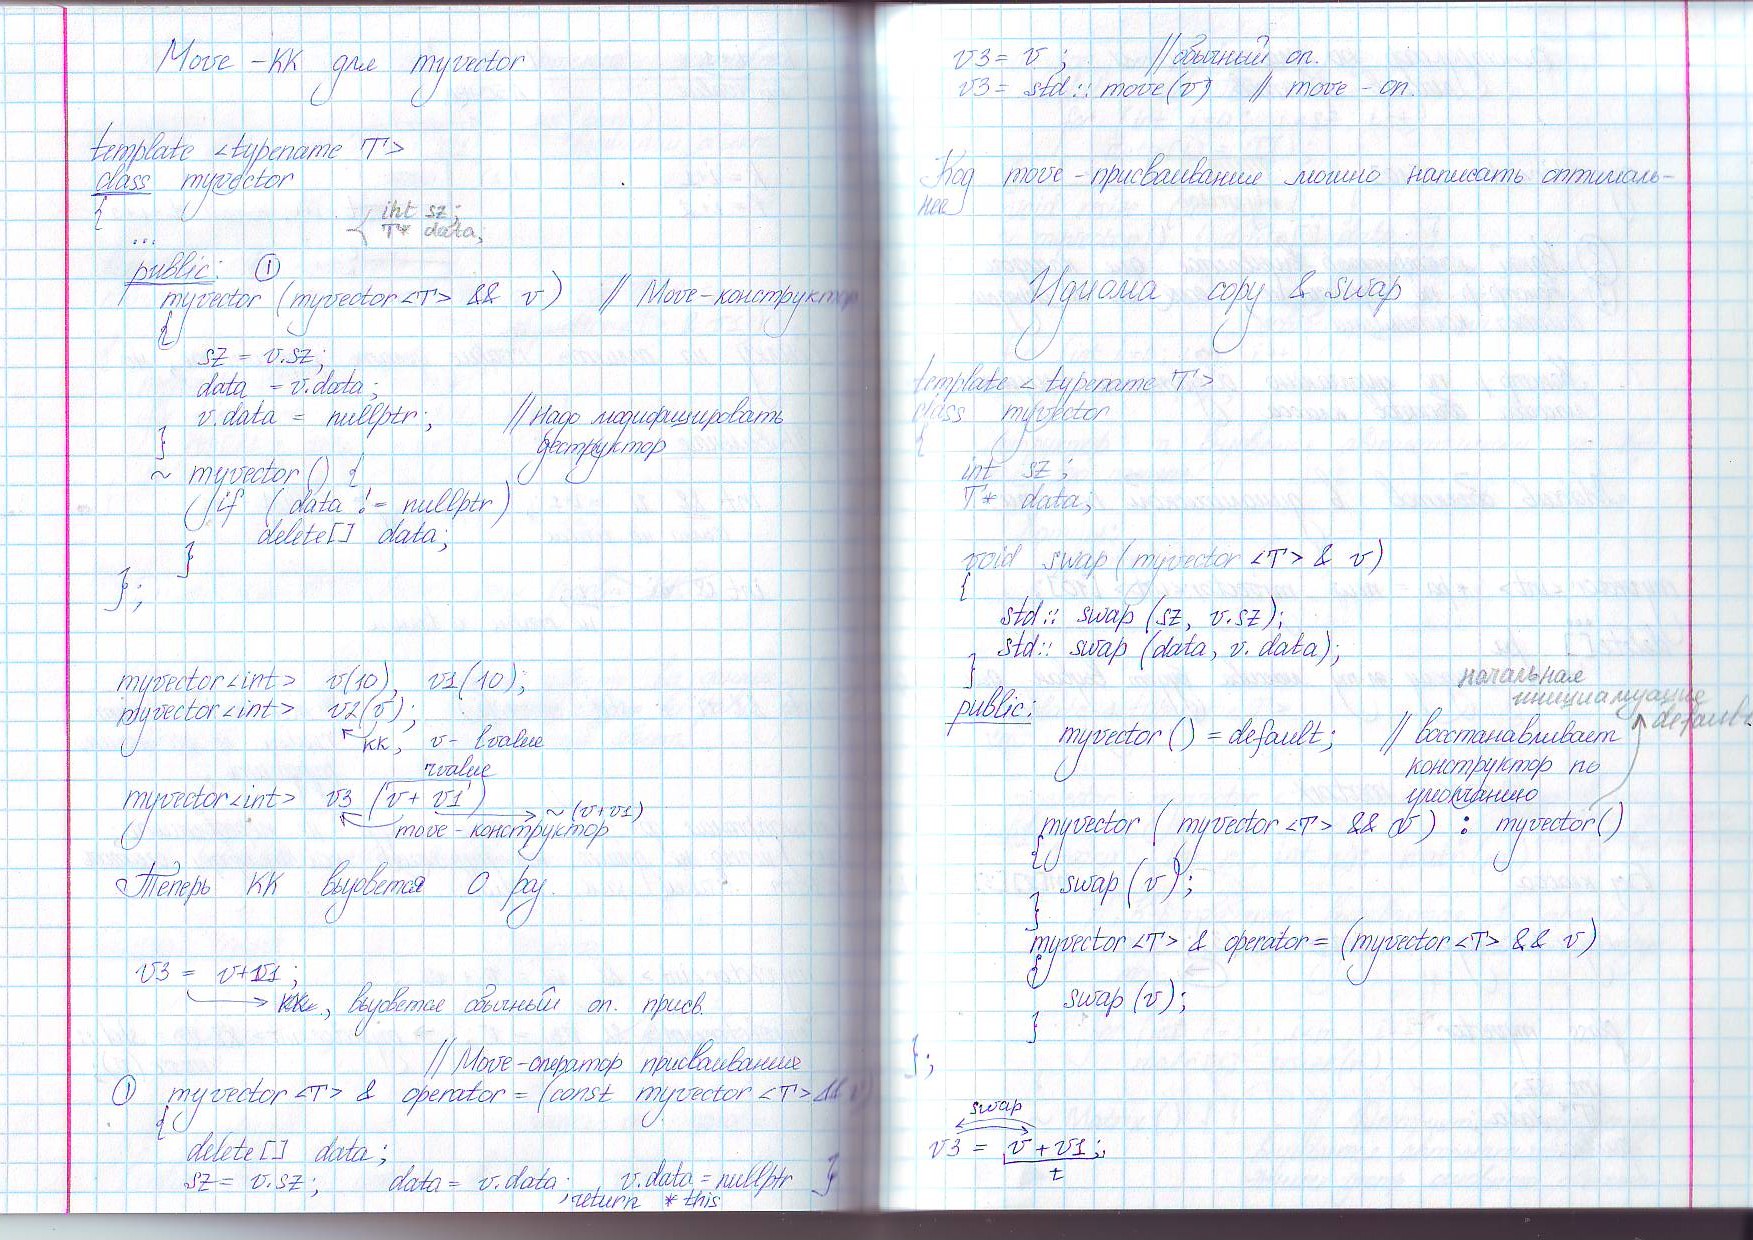 Move-КК для myvector
template <typename T>
class myvector
{
int sz;
T* data;
...
public: ①
myvector (myvector<T> && v) // Move-конструктор
{
sz = v.sz;
data = v.data;
v.data = nullptr; // Надо модифицировать
деструктор
}
~ myvector () {
if (data != nullptr)
delete[] data;
}
};
myvector<int> v(10), v1(10);
myvector<int> v2(v);
КК, v - lvalue
rvalue
myvector<int> v3 (v + v1)
~(v+v1)
move-конструктор
Теперь КК вызовется 0 раз.
v3 = v+v1;
вызовется обычный оп. присв.
// Move-оператор присваивания
① myvector<T> & operator = (const myvector<T> && v)
{
delete[] data;
sz = v.sz; data = v.data; v.data = nullptr }
return *this
v3 = v; // обычный оп.
v3 = std::move(v) // move-оп.
Код move-присваивание можно написать оптималь-
нее
Идиома copy & swap
template <typename T>
class myvector
{
int sz;
T* data;
void swap(myvector<T> & v)
{
std::swap (sz, v.sz);
std::swap (data, v.data);
}
начальная
инициализация
default
public:
myvector () = default; // восстанавливает
конструктор по
умолчанию
myvector (myvector<T> && v) : myvector()
{
swap(v);
}
myvector<T> & operator = (myvector<T> && v)
{
swap(v);
}
};
swap
v3 = v + v1;
t